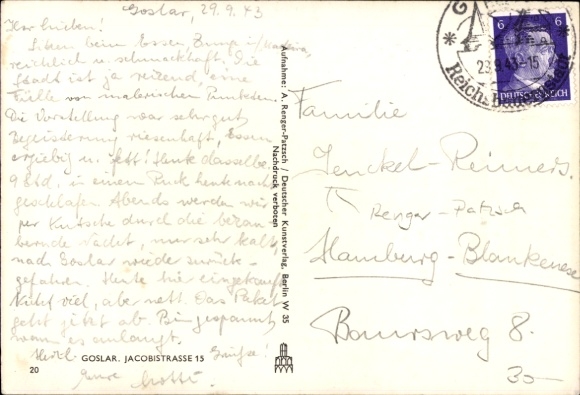 Goslar, 29.9.43
Ihr Lieben!
Sitzen beim Essen, Zunge i/Madeira,
reichlich u. schmackhaft. Die
Stadt ist ja reizend, eine
Fülle von malerischen Punkten.
Die Vorstellung war sehr gut
Begeisterung riesenhaft, Essen
ergiebig u. fett! Heute dasselbe,
9 Std. in einem Ruck heute nacht
geschlafen. Abends werden wir
per Kutsche durch die bezau-
bernde Nacht, nur sehr kalt,
nach Goslar wieder zurück-
gefahren. Heute hier eingekauft
Nicht viel, aber nett. Das Paket
geht jetzt ab. Bin gespannt,
wann es anlangt.
Herzl. Grüße!
Eure
GOSLAR, JACOBISTRASSE 15
20
Aufnahme: A. Renger-Patzsch / Deutscher Kunstverlag, Berlin W 35
Nachdruck verboten
6 6
DEUTSCHES REICH
29.9.43-15
Reichsbauernstadt
Familie
Jenckel-Reimers.
Renger-Patzsch
Hamburg-Blankenese
Baursweg 8.
30-